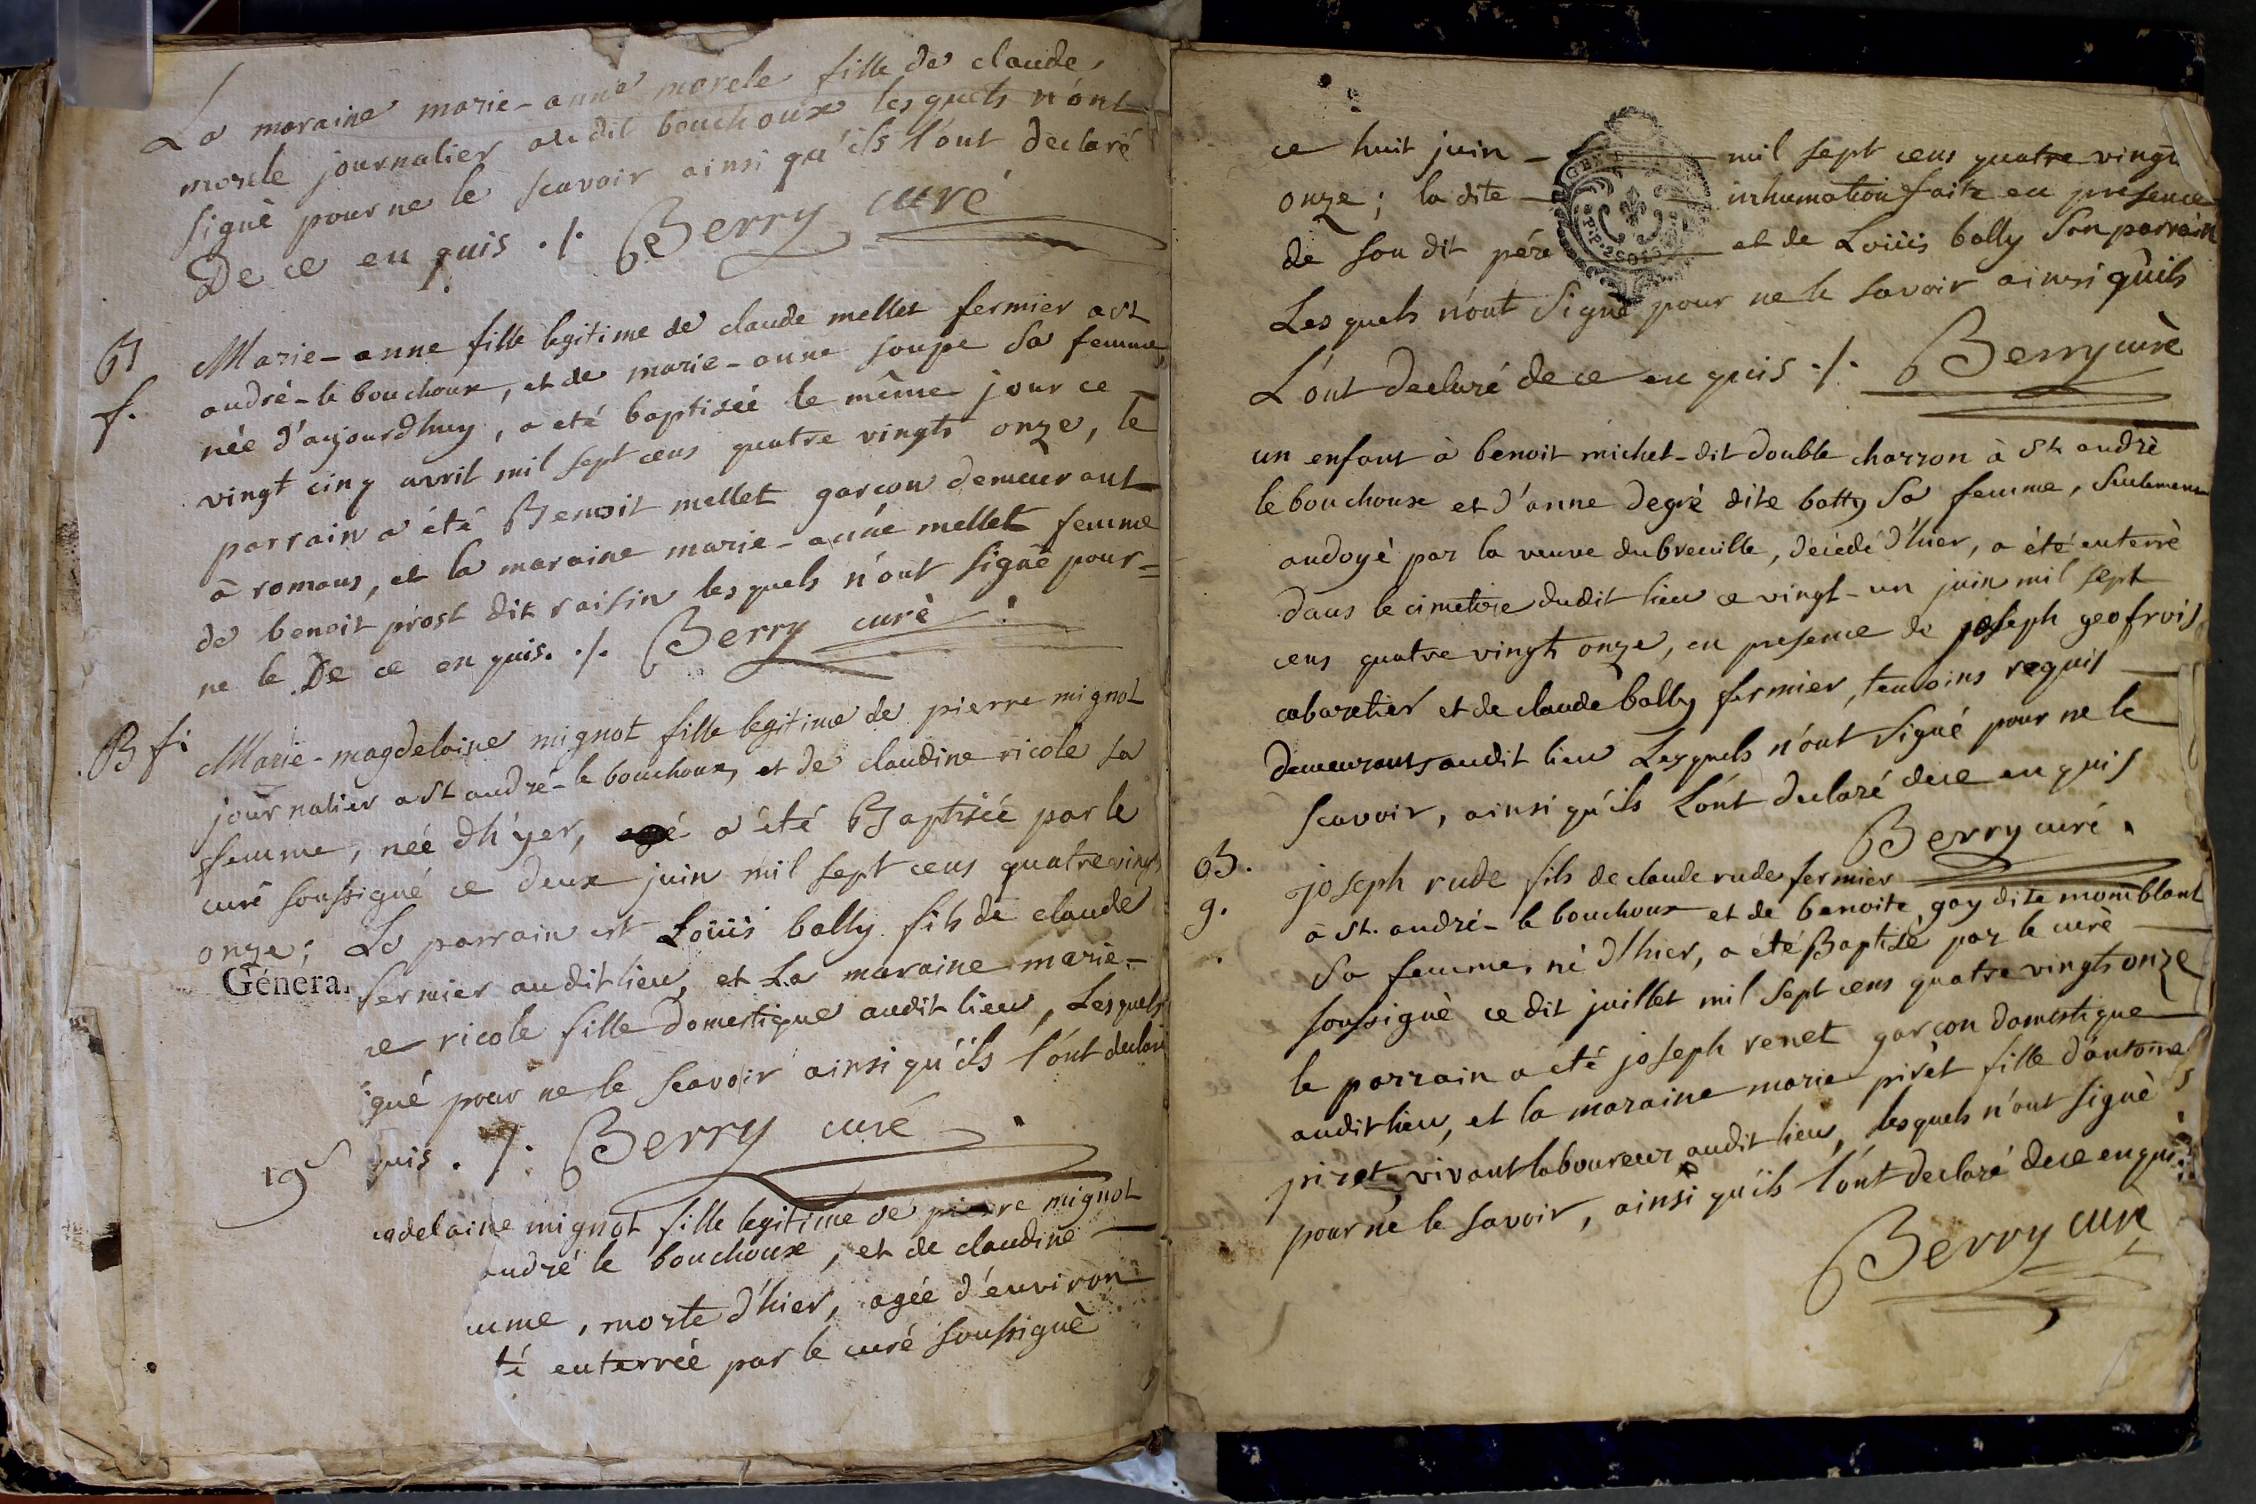 La maraine marie-anne morele fille de claude
morele journalier au dit bouchoux lesquels n'ont
signé pour ne le scavoir ainsi qu'ils l'ont declaré
De ce en quis ./. Berry curé
B Marie-anne fille legitime de claude mellet fermier a st
f. andré-le bouchoux, et de marie-anne soupe sa femme,
née d'aujourdhuy, a eté baptisée le même jour ce
vingt cinq avril mil sept cens quatre vingts onze, le
parrain a été Benoit mellet garcon demeurant
à romans, et la maraine marie-anne mellet femme
de benoit prost dit raisin lesquels n'ont signé pour=
ne le De ce en quis. ./. Berry curè
B fi Marie-magdelaine mignot fille legitime de pierre mignot
journalier a st andré-le bouchoux, et de claudine ricole sa
femme, née dh'yer, a été Baptisée par le
curé soussigné ce deux juin mil sept cens quatre vingts
onze; Le parrain est Loüis bally fils de claude
fermier audit lieu, et La maraine marie-
Généra
ce ricole fille domestique audit lieu, Lesquels
gné pour ne le scavoir ainsi qu'ils l'ont declaré
19 quis ./. Berry curé
adelaine mignot fille legitime de pierre mignot
andré le bouchoux, et de claudine
mme, morte d'hier, agée d'environ
té enterrée par le curé soussignè
ce huit juin mil sept cens quatre vingt
onze; la dite inhumation faite en presence
de son dit père et de Loüis bally son parrain
Lesquels n'ont Signé pour ne le savoir ainsi qu'ils
L'ont declaré de ce en quis ./. Berry curè
un enfant à benoit michet-dit double charron à st andrè
le bouchoux et d'anne degré dite batty sa femme, seulement
ondoyé par la veuve dubreuille, décédé d'hier, a été enterrè
dans le cimetoire dudit lieu ce vingt-un juin mil sept
cens quatre vingts onze, en presence de joseph geofrois
cabaretier et de claude bally fermier, temoins requis
demeurants audit lieu Lesquels n'ont signé pour ne le
scavoir, ainsi qu'ils L'ont declaré de ce en quis
Berry curé.
B. joseph rude fils de claude rude fermier
g. à st. andré-le bouchoux et de benoite gay dite momblant
sa femme, né d'hier, a été Baptisé par le curè
soussignè ce dit juillet mil sept cens quatre vingts onze
le parrain a eté joseph renet garçon domestique
audit lieu, et la maraine marie piret fille d'antoine
piret, vivant laboureur audit lieu, lesquels n'ont signè
pour ne le savoir, ainsi qu'ils l'ont declaré de ce en quis
Berry curé